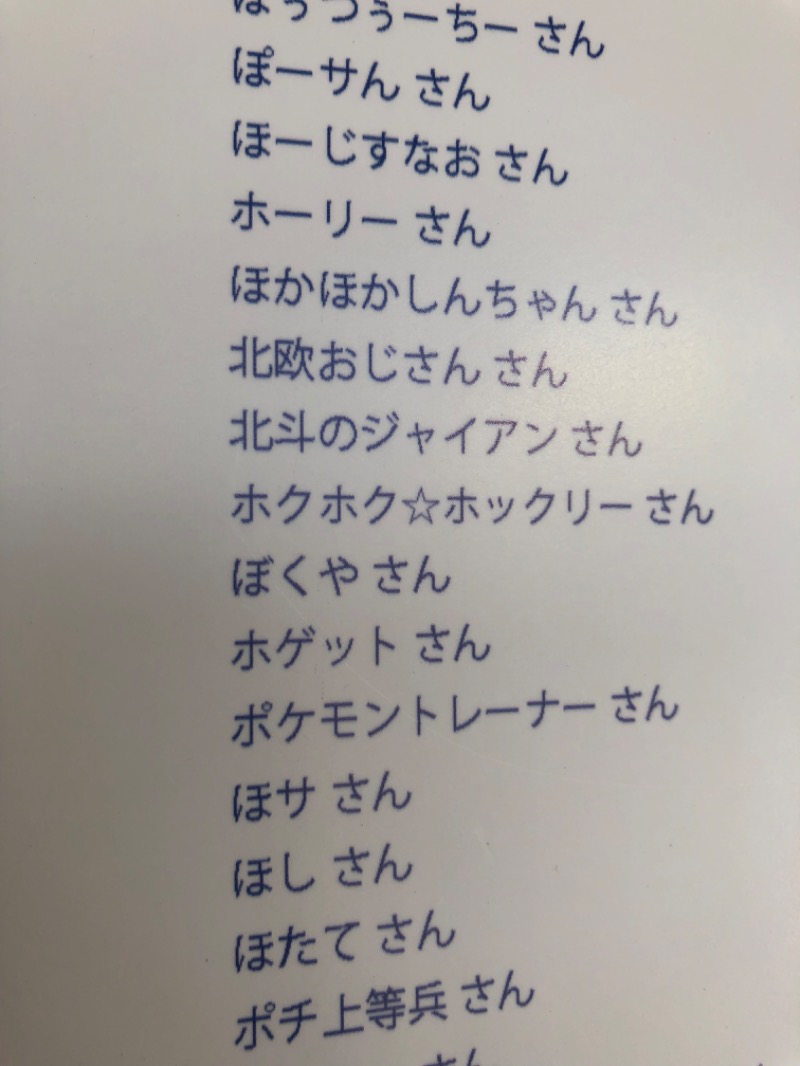 ほぅつぅーちー さん
ぽーサん さん
ほーじすなお さん
ホーリー さん
ほかほかしんちゃん さん
北欧おじさん さん
北斗のジャイアン さん
ホクホク☆ホックリー さん
ぼくや さん
ホゲット さん
ポケモントレーナー さん
ほサ さん
ほし さん
ほたて さん
ポチ上等兵 さん
さん